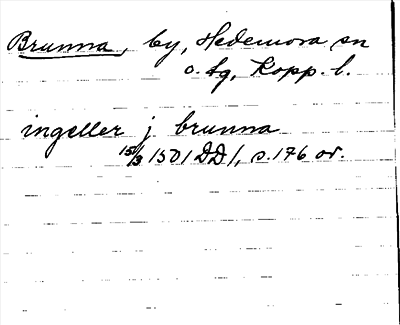 Brunna, by, Hedemora sn
o. tg, Kopp. l.
ingeller j brunna
15/3 1501 DD1, s. 176 or.